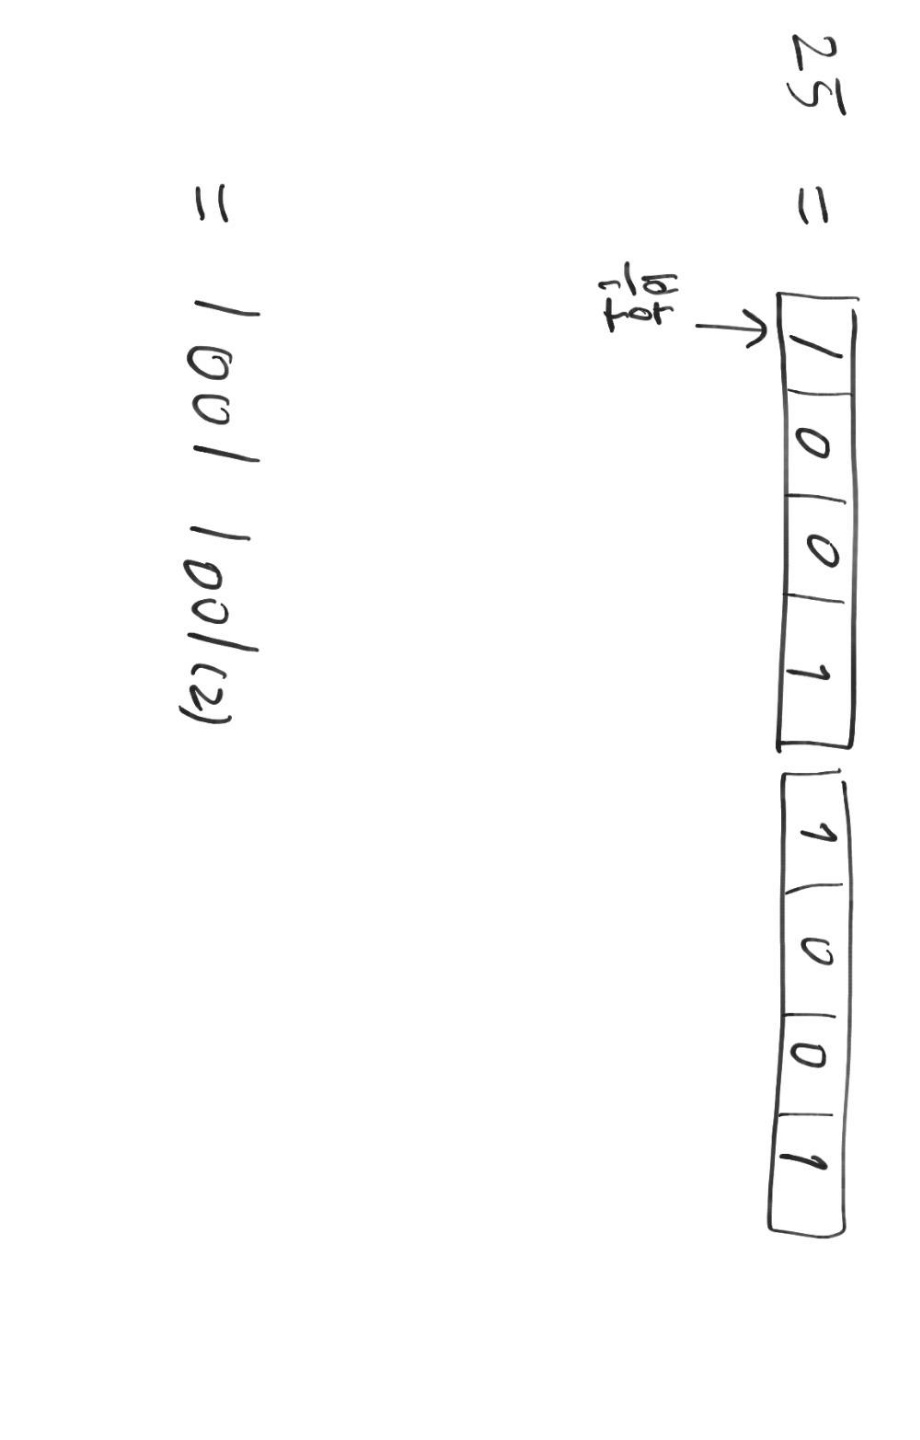 25 = 1 0 0 1 1 0 0 1
= 1001 1001(2)